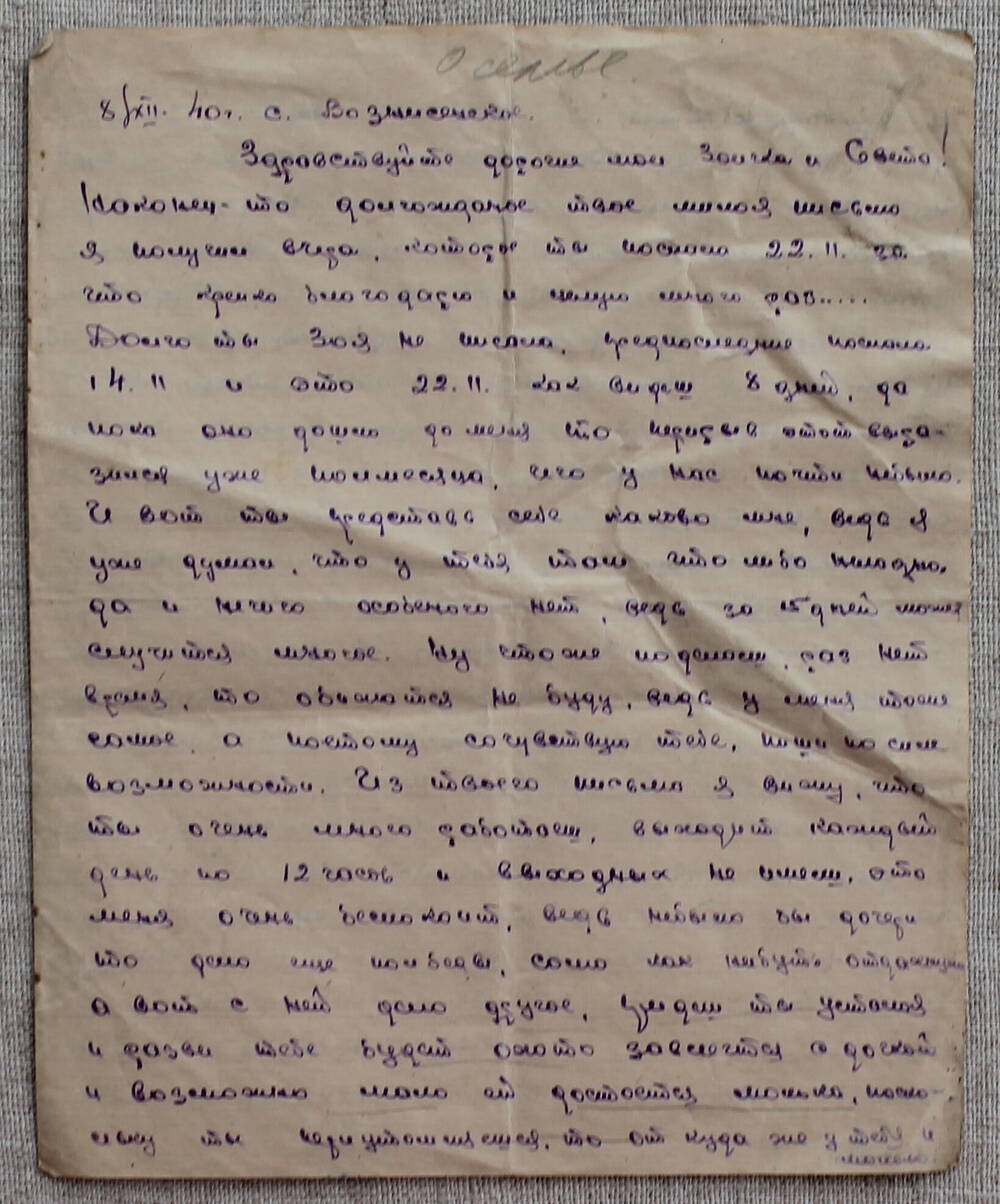 О семье.
8/XII. 40 г. с. Вознисенское.
Здравствуйте дорогие мои Зоичка и Света!
Наконец-то долгожданое твое милоя письмо
я получил вчера, которое ты послала 22.11. за
что крепко благодарю и целую много раз.....
Долго ты Зоя не писала, предпоследние послала
14.11 и это 22.11. как видеш 8 дней, да
пока оно дошло до меня то перерыв этот выра-
зился уже полмесяца, чего у нас почти небыло.
И вот ты представь себе каково мне, ведь я
уже думал, что у тебя там что либо неладно,
да и ничего особеного нет, ведь за 15 дней может
случится многое. Ну что же поделаеш, раз нет
время, то обижатся не буду, ведь у меня тоже
самое, а поэтому сочувствую тебе, пиши по силе
возможности. Из твоего письма я вижу, что
ты очень много работаеш, выходит каждый
день по 12 часов и выходных не имееш, это
меня очень беспокоит, ведь небыло бы дочери
то дело еще полбеды, сама как нибуть отдохнула
а вот с ней дело другое, придеш ты усталоя
и разви тебе будет охота завлечтся с дочкой
и возможно мало ей достоется молока, посколь-
ску ты переутомляешся, то от куда же у тебя и
молоко